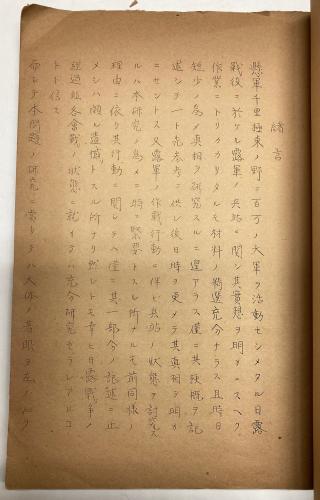 緒言
懸軍千里極東ノ野ニ百万ノ大軍ヲ活動セシメタル日露
戦役ニ於ケル露軍ノ兵站ニ関シ其実想ヲ明ニスヘク
作業ニトリカヽリタルモ材料ノ精選充分ナラス且時日
短少ノ為メ真相ヲ研究スルニ遑アラス僅ニ其梗概ヲ記
述シテ一ト先参考ニ供シ後日時ヲ更メテ其真相ヲ明カ
ニセントス又露軍ノ作戦行動ニ伴ヒ兵站ノ状態ヲ討究ス
ルハ本研究ノ為メニ特ニ緊要トスル所ナルモ前同様ノ
理由ニ依リ其行動ニ関シテハ僅ニ其一部分ノ記述ニ止
メシハ頗ル遺憾トスル所ナリ然レトモ幸ヒ日露戦争ノ
経過並各会戦ノ状態ニ就テハ充分研究セラレアルコ
トト信ス
而シテ本問題ノ研究ニ当リテハ大体ノ着眼ヲ左ノ如ク